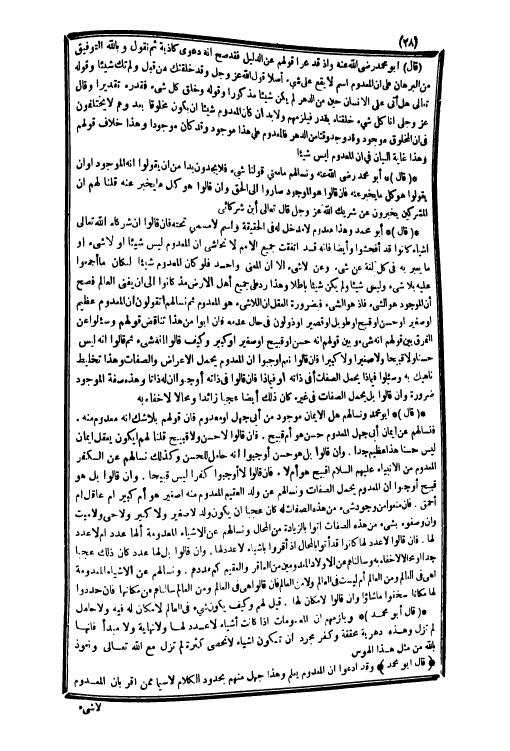 (٢٨)
(قال) ابو محمد رضى الله عنه واذ قد عرا قولهم عن الدليل فقد صح انه دعوى كاذبة ثم نقول وبالله التوفيق
من البرهان على ان المعدوم اسم لا يقع على شىء أصلا قول الله عز وجل وقد خلقتك من قبل ولم تك شيئا وقوله
تعالى هل أتى على الانسان حين من الدهر لم يكن شيئا مذكورا وقوله وخلق كل شىء فقدره تقديرا وقال
عز وجل انا كل شىء خلقناه بقدر فيلزمهم ولابد ان كان المعدوم شيئا ان يكون مخلوقا بعد وهم لا يختلفون
فى ان المخلوق موجود وقد وجد وقتا من الدهر فالمعدوم على هذا موجود وقد كان موجودا وهذا خلاف قولهم
وهذا غاية البيان فى ان المعدوم ليس شيئا
*(قال)* أبو محمد رضى الله عنه ونسالهم مامعنى قولنا شىء فلا يجدون بدا من ان يقولوا انه الموجود اوان
يقولوا هو كل ما يخبر عنه فان قالوا هو الموجود صاروا الى الحق وان قالوا هو كل ما يخبر عنه قلنا لهم ان
المشركين يخبرون عن شريك الله عز وجل قال تعالى أين شركائى
*(قال)* أبو محمد وهذا معدوم لا مدخل له فى الحقيقة واسم لا مسمى تحته فان قالوا ان شركاء الله تعالى
اشياء كانوا قد أفحشوا وأيضا فانه قد اتفقت جميع الامم لا نحاشى ان المعدوم ليس شيئا او لا شىء او
ما يعبر به فى كل لغة عن شىء وعن لا شىء الا ان المعنى واحد فلو كان المعدوم شيئا لكان ما أجمعوا
عليه بلا شىء وليس شيئا ولم يكن شيئا باطلا وهذا رد على جميع أهل الارض مذ كانوا الى ان يفنى العالم فصح
أن الموجود هو الشىء فاذ هو الشىء فبضرورة العقل ان اللاشىء هو المعدوم ثم نسالهم أتقولون ان المعدوم عظيم
اوصغير اوحسن اوقبيح اوطويل اوقصير اوذولون فى حال عدمه فان ابوا من هذا تناقض قولهم وسئلوا عن
الفرق بين قولهم انه شىء وبين قولهم انه حسن او قبيح اوصغير اوكبير وكيف قالوا انه شىء ثم قالوا انه ليس
حسنا ولا قبيحا ولا صغيرا ولا كبيرا فان قالوا نعم اوجبوا ان المعدوم يحمل الاعراض والصفات وهذا تخليط
ناهيك به وسئلوا فيماذا يحمل الصفات أفى ذاته اوفيماذا فان قالوا فى ذاته أوجبوا ان له ذاتا وهذه صفة الموجود
ضرورة وان قالوا بل يحمل الصفات فى غيره كان ذلك أيضا عجبا زائدا ومحالا لا خفاء به
*(قال)* ابو محمد ونسالهم هل الايمان موجود من أبى جهل او معدوم فان قولهم بلا شك انه معدوم منه .
فنسالهم عن ايمان أبى جهل المعدوم حسن هو أم قبيح . فان قالوا لا حسن ولا قبيح قلنا لهم ايكون يعقل ايمان
ليس حسنا هذا عظيم جدا . وان قالوا بل هو حسن أوجبوا انه حامل للحسن وكذلك نسالهم عن الكفر
المعدوم من الانبياء عليهم السلام أقبيح هو أم لا . فان قالوا لا أوجبوا كفرا ليس قبيحا . وان قالوا بل هو
قبيح أوجبوا ان المعدوم يحمل الصفات ونسالهم عن ولد العقيم المعدوم منه اصغير هو أم كبير ام عاقل ام
أحمق . فان منعوا من وجود شىء من هذه الصفات له كان عجبا ان يكون ولد لا صغير ولا كبير ولا حى ولا ميت
وان وصفوه بشىء من هذه الصفات اتوا بالزيادة من المحال ونسالهم عن الاشياء المعدومة ألها عدد ام لا عدد
لها . فان قالوا لا عدد لها كانوا قد أتوا بالمحال اذ أقروا باشياء لا عدد لها . وان قالوا بل لها عدد كان ذلك عجبا
جدا ومحالا لا خفاء به وسالناهم عن الاولاد المعدومين من العاقر والعقيم كم عددهم . ونسالهم عن الاشياء المعدومة
اهى فى العالم ومن العالم أم ليست فى العالم ولا من العالم فان قالوا هى فى العالم ومن العالم سالناهم عن مكانها فان حددوا
لها مكانا سخفوا ماشاؤا وان قالوا لا مكان لها . قيل لهم وكيف يكون شىء فى العالم لا مكان له فيه ولا حامل
*(قال أبو محمد)* ويلزمهم ان المعدومات اذا كانت أشياء لا عدد لها ولا نهاية ولا مبدأ فانها
لم تزل وهذه دهرية محققة وكفر مجرد ان تكون اشياء لا تحصى كثرة لم تزل مع الله تعالى ونعوذ
بالله من مثل هذا الهوس
﴿ قال ابو محمد ﴾ وقد ادعوا ان المعدوم يعلم وهذا جهل منهم بحدود الكلام لا سيما ممن اقر بان المعدوم
لاشىء